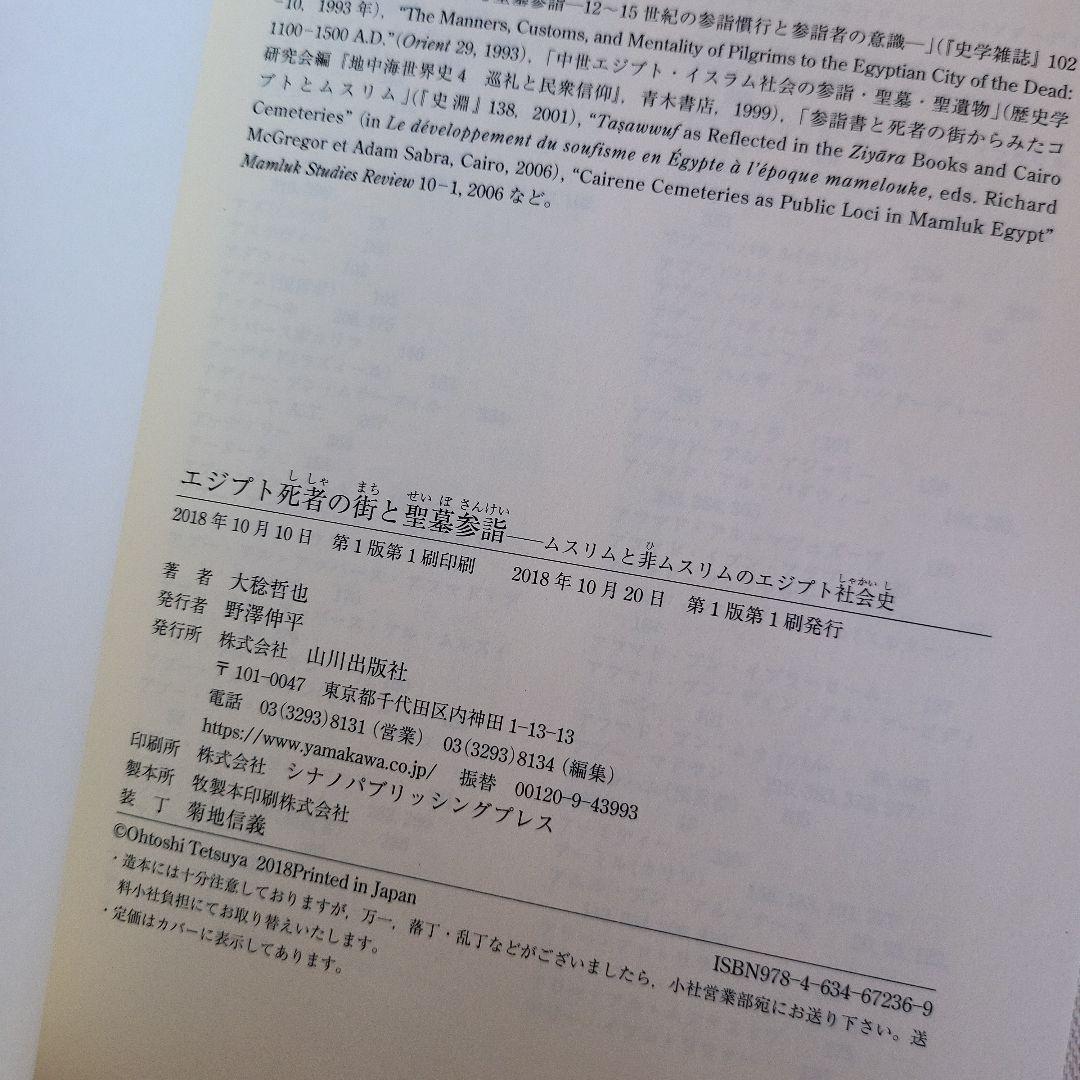 聖墓参詣―12～15世紀の参詣慣行と参詣者の意識―」(『史学雑誌』102
-10, 1993年), "The Manners, Customs, and Mentality of Pilgrims to the Egyptian City of the Dead:
1100-1500 A.D."(Orient 29, 1993),「中世エジプト・イスラム社会の参詣・聖墓・聖遺物」(歴史学
研究会編『地中海世界史4　巡礼と民衆信仰』, 青木書店, 1999),「参詣書と死者の街からみたコ
プトとムスリム」(『史淵』138, 2001), "Taṣawwuf as Reflected in the Ziyāra Books and Cairo
Cemeteries" (in Le développement du soufisme en Égypte à l'époque mamelouke, eds. Richard
McGregor et Adam Sabra, Cairo, 2006), "Cairene Cemeteries as Public Loci in Mamluk Egypt"
Mamluk Studies Review 10-1, 2006 など。
ししゃ まち せいぼさんけい
エジプト死者の街と聖墓参詣――ムスリムと非ムスリムのエジプト社会史
ひ しゃかいし
2018年10月10日　第1版第1刷印刷　2018年10月20日　第1版第1刷発行
著　者　大稔哲也
発行者　野澤伸平
発行所　株式会社　山川出版社
〒101-0047　東京都千代田区内神田1-13-13
電話　03(3293)8131(営業)　03(3293)8134(編集)
https://www.yamakawa.co.jp/　振替　00120-9-43993
印刷所　株式会社　シナノパブリッシングプレス
製本所　牧製本印刷株式会社
装　丁　菊地信義
©Ohtoshi Tetsuya 2018Printed in Japan
ISBN978-4-634-67236-9
・造本には十分注意しておりますが, 万一, 落丁・乱丁などがございましたら, 小社営業部宛にお送り下さい。送
料小社負担にてお取り替えいたします。
・定価はカバーに表示してあります。